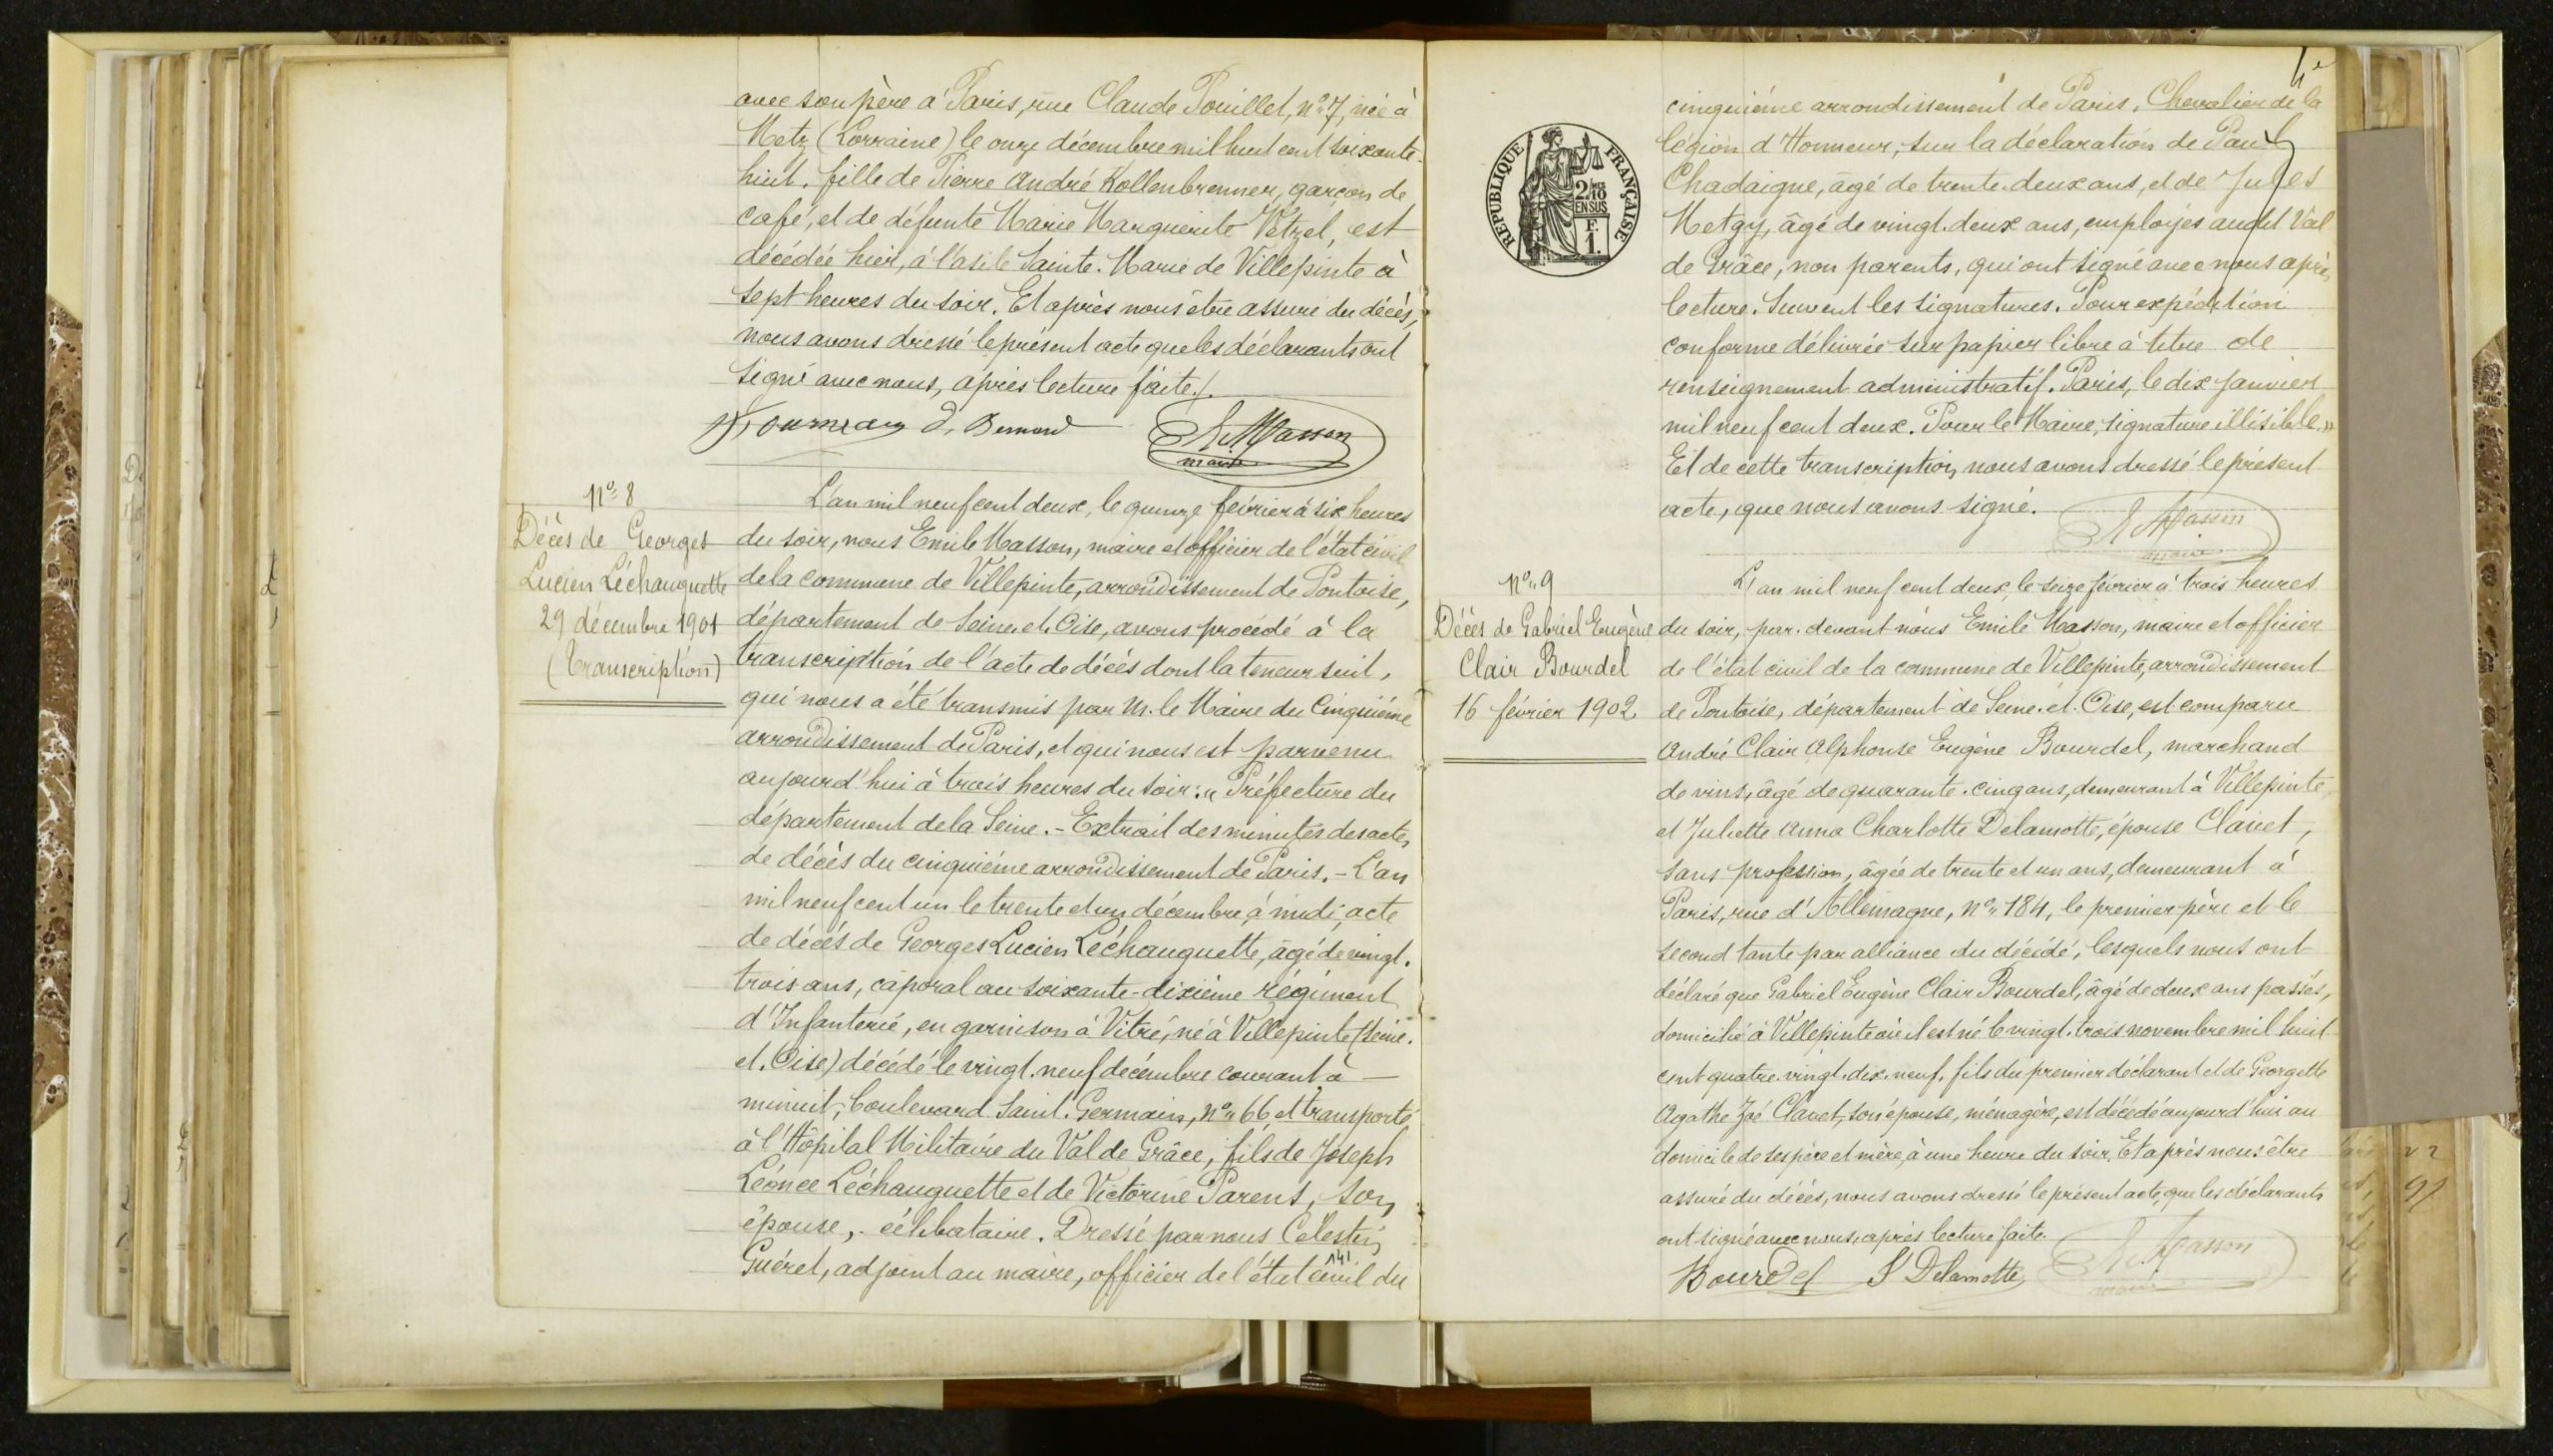 avec son père à Paris, rue Claude Pouillet, n° 7, née à
Metz (Lorraine) le onze décembre mil huit cent soixante-
huit, fille de Pierre André Kollenbrenner, garçon de
café, et de défunte Marie Marguerite Vetzel, est
décédée hier, à l'asile Sainte-Marie de Villepinte à
sept heures du soir. Et après nous être assuré du décès,
nous avons dressé le présent acte que les déclarants ont
signé avec nous, après lecture faite./.
Bernard E. Masson
maire
N° 8
Décès de Georges
Lucien Léchauguette
29 décembre 1901
(Transcription)
L'an mil neuf cent deux, le quinze février à six heures
du soir, nous Emile Masson, maire et officier de l'état civil
de la commune de Villepinte, arrondissement de Pontoise,
département de Seine-et-Oise, avons procédé à la
transcription de l'acte de décès dont la teneur suit,
qui nous a été transmis par M. le Maire du Cinquième
arrondissement de Paris, et qui nous est parvenu
aujourd'hui à trois heures du soir: « Préfecture du
département de la Seine. - Extrait des minutes des actes
de décès du cinquième arrondissement de Paris. - L'an
mil neuf cent un le trente et un décembre, à midi, acte
de décès de Georges Lucien Léchauguette, âgé de vingt-
trois ans, caporal au soixante-dixième régiment
d'Infanterie, en garnison à Vitré, né à Villepinte (Seine-
et-Oise) décédé le vingt-neuf décembre courant à
minuit, boulevard Saint-Germain, n° 66 et transporté
à l'Hôpital Militaire du Val de Grâce, fils de Joseph
Léonce Léchauguette et de Victorine Parent, son
épouse, - célibataire. Dressé par nous Célestin
Guéret, adjoint au maire, officier de l'état civil du
141
REPUBLIQUE FRANÇAISE
2/10
EN SUS
F.
1.
cinquième arrondissement de Paris, Chevalier de la
légion d'Honneur, sur la déclaration de Paul
Chadaigne, âgé de trente-deux ans, et de Jules
Metgy, âgé de vingt-deux ans, employés audit Val
de Grâce, non parents, qui ont signé avec nous après
lecture. Suivent les signatures. Pour expédition
conforme délivrée sur papier libre à titre de
renseignement administratif. Paris, le dix Janvier
mil neuf cent deux. Pour le Maire, signature illisible. »
Et de cette transcription, nous avons dressé le présent
acte, que nous avons signé.
E. Masson
maire
N° 9
Décès de Gabriel Eugène
Clair Bourdel
16 février 1902
L'an mil neuf cent deux, le seize février à trois heures
du soir, par-devant nous Emile Masson, maire et officier
de l'état civil de la commune de Villepinte, arrondissement
de Pontoise, département de Seine-et-Oise, est comparu
André Clair Alphonse Eugène Bourdel, marchand
de vins, âgé de quarante-cinq ans, demeurant à Villepinte,
et Juliette Anna Charlotte Delamotte, épouse Clavet,
sans profession, âgée de trente et un ans, demeurant à
Paris, rue d'Allemagne, n° 184, le premier père et le
second tante par alliance du décédé, lesquels nous ont
déclaré que Gabriel Eugène Clair Bourdel, âgé de deux ans passés,
domicilié à Villepinte où il est né le vingt-trois novembre mil huit
cent quatre-vingt-dix-neuf, fils du premier déclarant et de Georgette
Agathe Zoé Clavet, son épouse, ménagère, est décédé aujourd'hui au
domicile de ses père et mère, à une heure du soir. Et après nous être
assuré du décès, nous avons dressé le présent acte, que les déclarants
ont signé avec nous, après lecture faite.
Bourdel J Delamotte E. Masson
maire